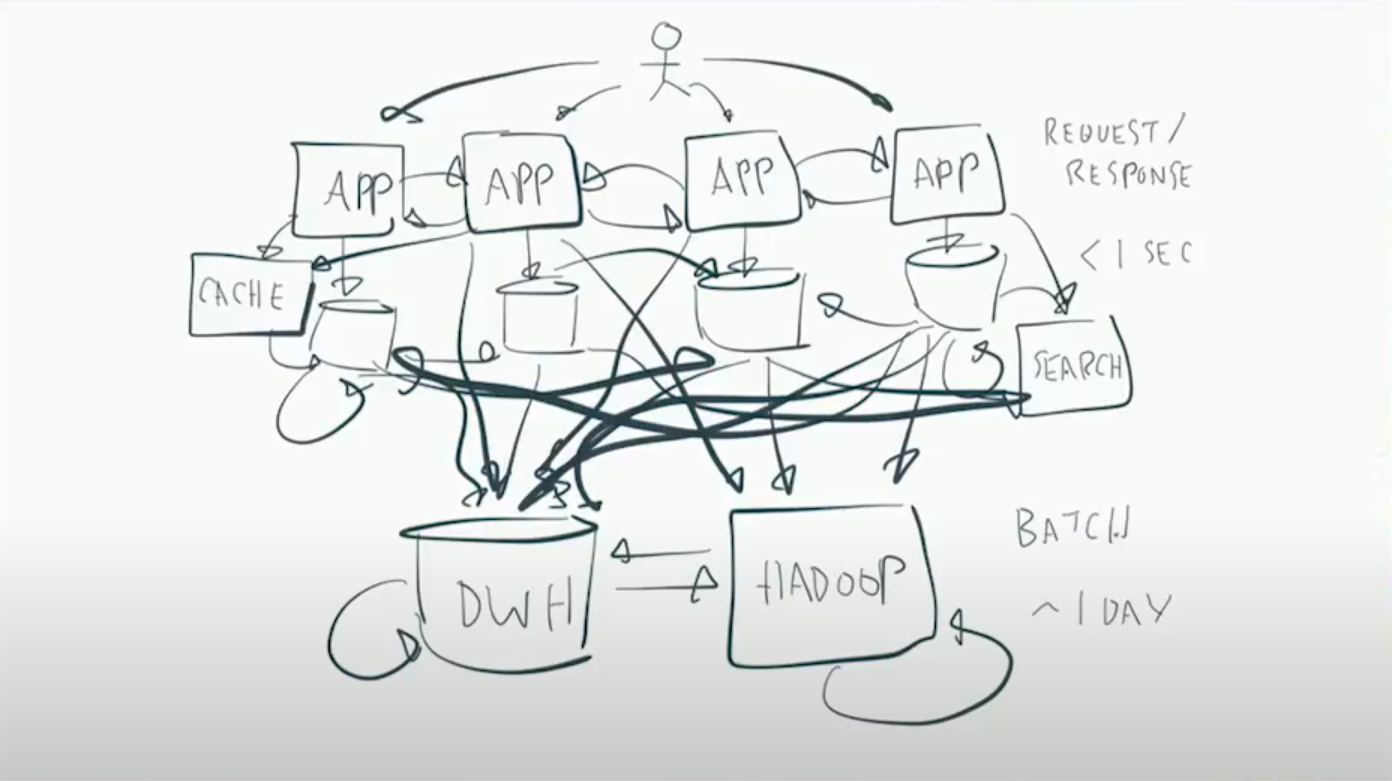 APP
APP
APP
APP
REQUEST/
RESPONSE
CACHE
< 1 SEC
SEARCH
DWH
HADOOP
BATCH
~ 1 DAY